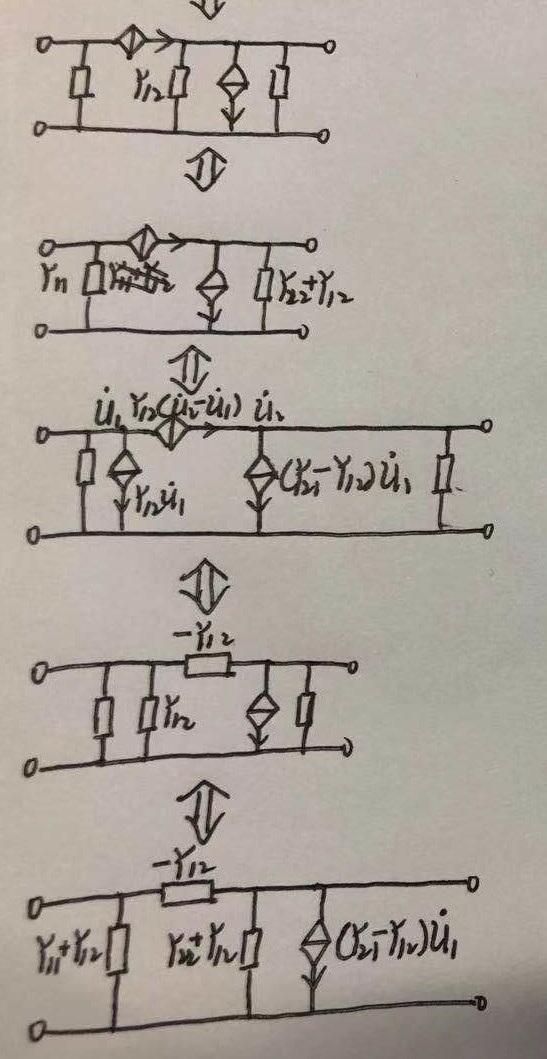 Y₁₂
Y₁₁ Y₂₂+Y₁₂
U̇₁ Y₁₂(U̇₂-U̇₁) U̇₂
Y₁₂U̇₁ (Y₂₁-Y₁₂)U̇₁
-Y₁₂
Y₁₂
-Y₁₂
Y₁₁+Y₁₂ Y₂₂+Y₁₂ (Y₂₁-Y₁₂)U̇₁